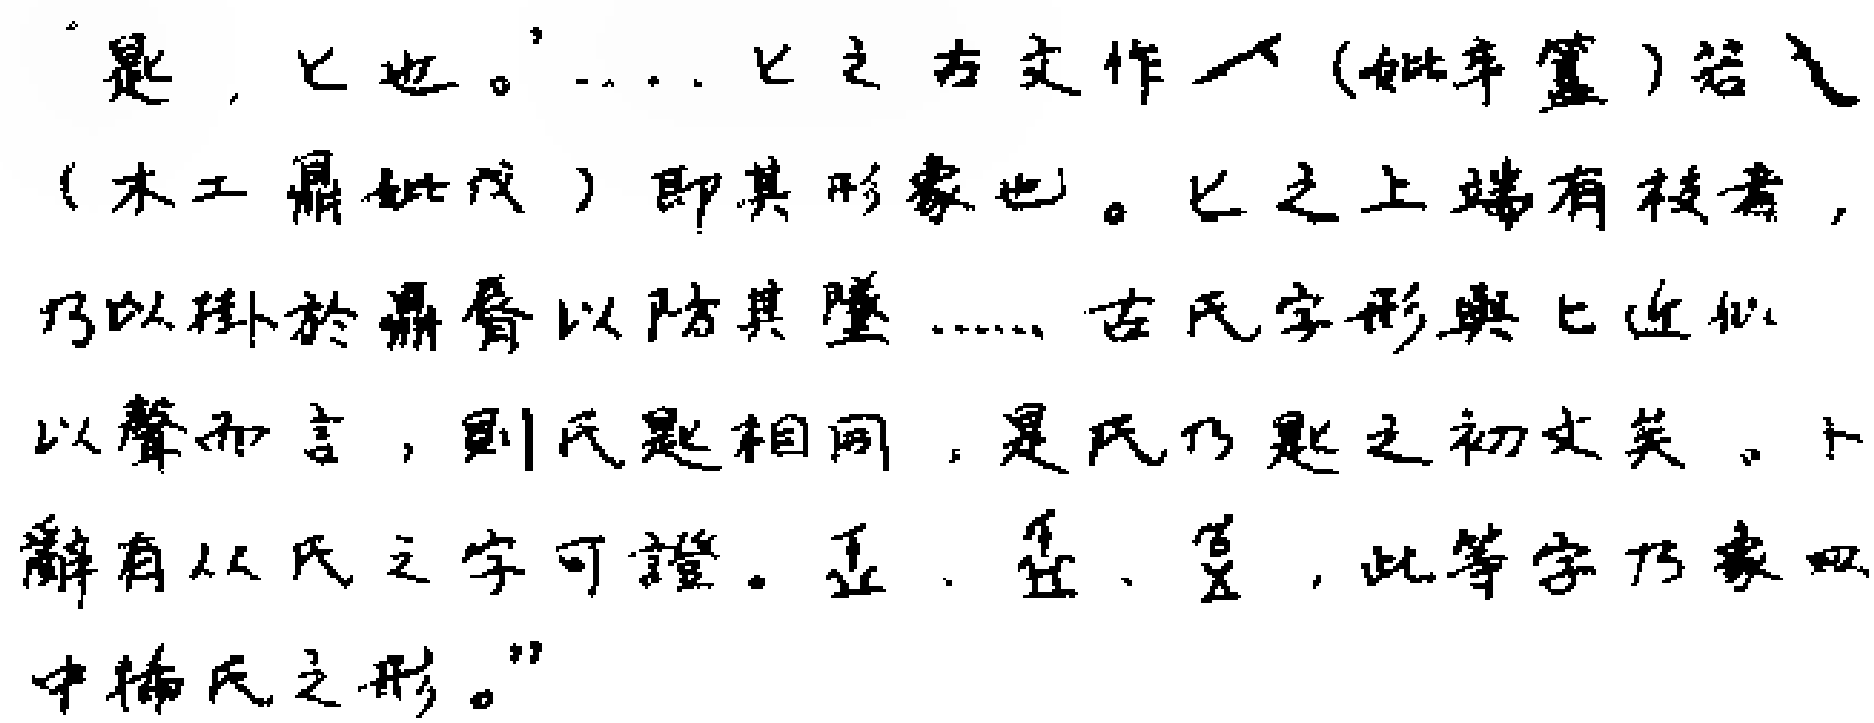 “匙，匕也。’.....匕之古文作（妣辛簋）若
（木工鼎妣戊）即其形象也。匕之上端有枝者，
乃以掛於鼎脣以防其墜……古氏字形與匕近似
以聲而言，則氏匙相同，是氏乃匙之初文矣。卜
辭有从氏之字可證。、、，此等字乃象皿
中插氏之形。”